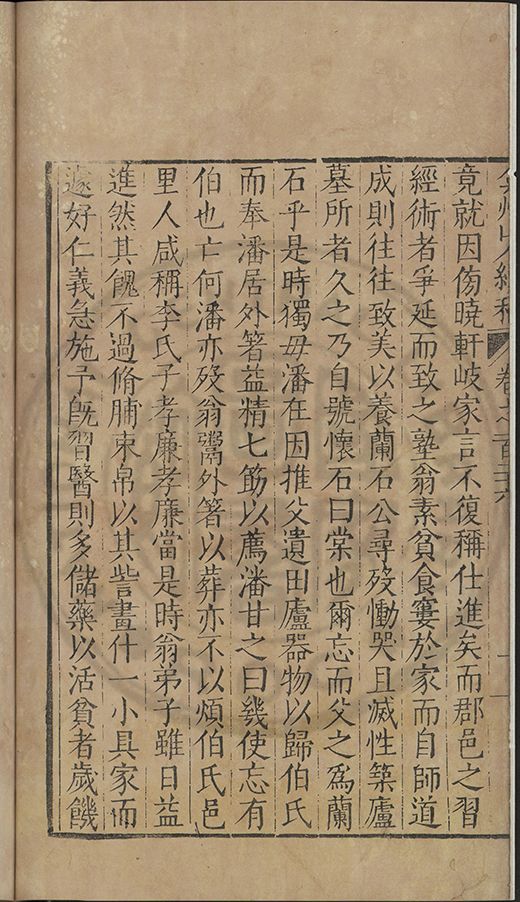 弇州山人續稿 卷之一百三六
竟就因傍曉軒岐家言不復稱仕進矣而郡邑之習
經術者爭延而致之塾翁素貧食寠於家而自師道
成則往往致美以養蘭石公尋歿慟哭且滅性築廬
墓所者久之乃自號懷石曰棠也爾忘而父之為蘭
石乎是時獨毋潘在因推父遺田廬器物以歸伯氏
而奉潘居外箸益精七筯以薦潘甘之曰幾使忘有
伯也亡何潘亦歿翁鬻外箸以葬亦不以煩伯氏邑
里人咸稱李氏子孝廉孝廉當是時翁弟子雖日益
進然其餽不過脩脯束帛以其訾畫什一小具家而
遂好仁義急施予旣習醫則多儲藥以活貧者歲饑